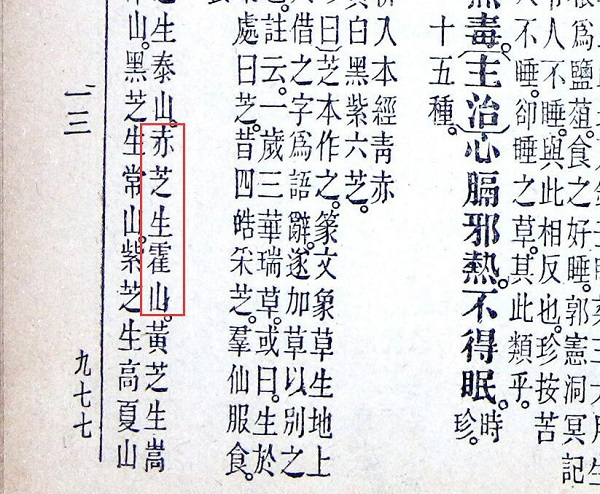 為鹽葅。食之好睡。郭憲洞冥記
人不睡。與此相反也。珍按苦
人不睡。卻睡之草。其此類乎。
毒。主治心膈邪熱。不得眠。時珍。
十五種。
入本經青赤
白黑紫六芝。
曰芝本作之。篆文象草生地上
借之字為語辭。遂加草以別之
註云。一歲三華瑞草。或曰。生於
處曰芝。昔四皓采芝。羣仙服食。
生泰山。赤芝生霍山。黃芝生嵩
山。黑芝生常山。紫芝生高夏山
一三
九七七